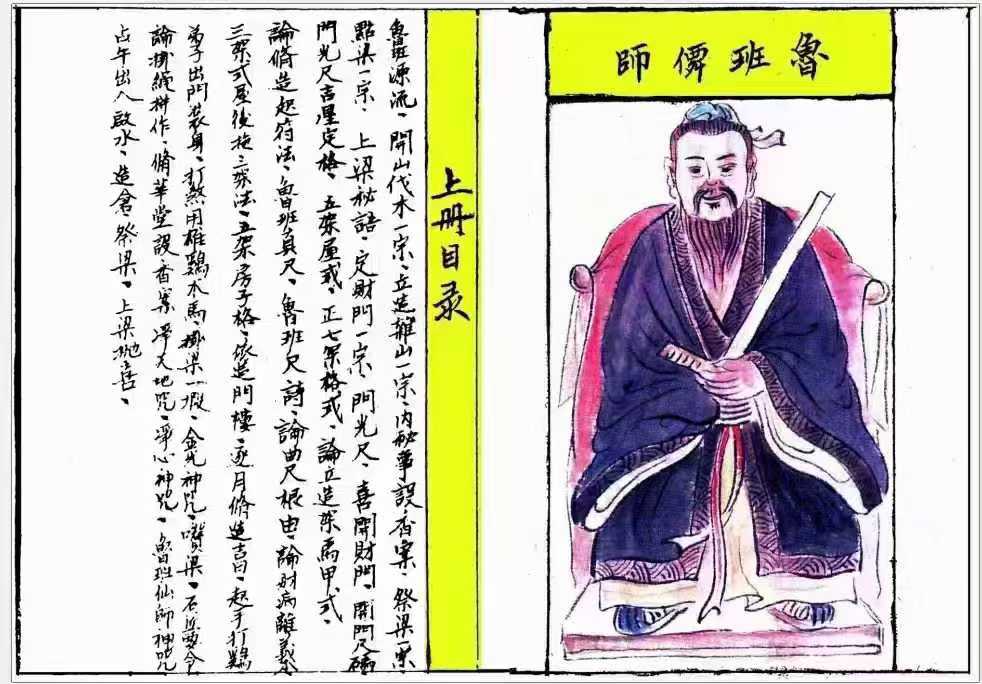 魯班僊師
上册目录
魯班源流、開山伐木一宗、立造雜山一宗、内秘事設香案、祭梁一宗
點梁一宗、上梁秘語、定財門一宗、門光尺、喜開財門、開門尺
門光尺吉星定格、五架屋式、正七架格式、論立造架馬甲式、
論脩造起符法、魯班真尺、魯班尺詩、論曲尺根由、論財病離義
三架式屋後拖三架法、五架房子格、造門樓、逐月脩造吉日、起手打鷄
弟子出門裝身、打煞用雄鷄木馬、掛梁一段、金光神咒、讚梁、
論掛綫、脩華堂設香案、淨天地咒、淨心神咒、魯班仙師神咒
占午出入啟水、造倉祭梁、上梁拋喜、